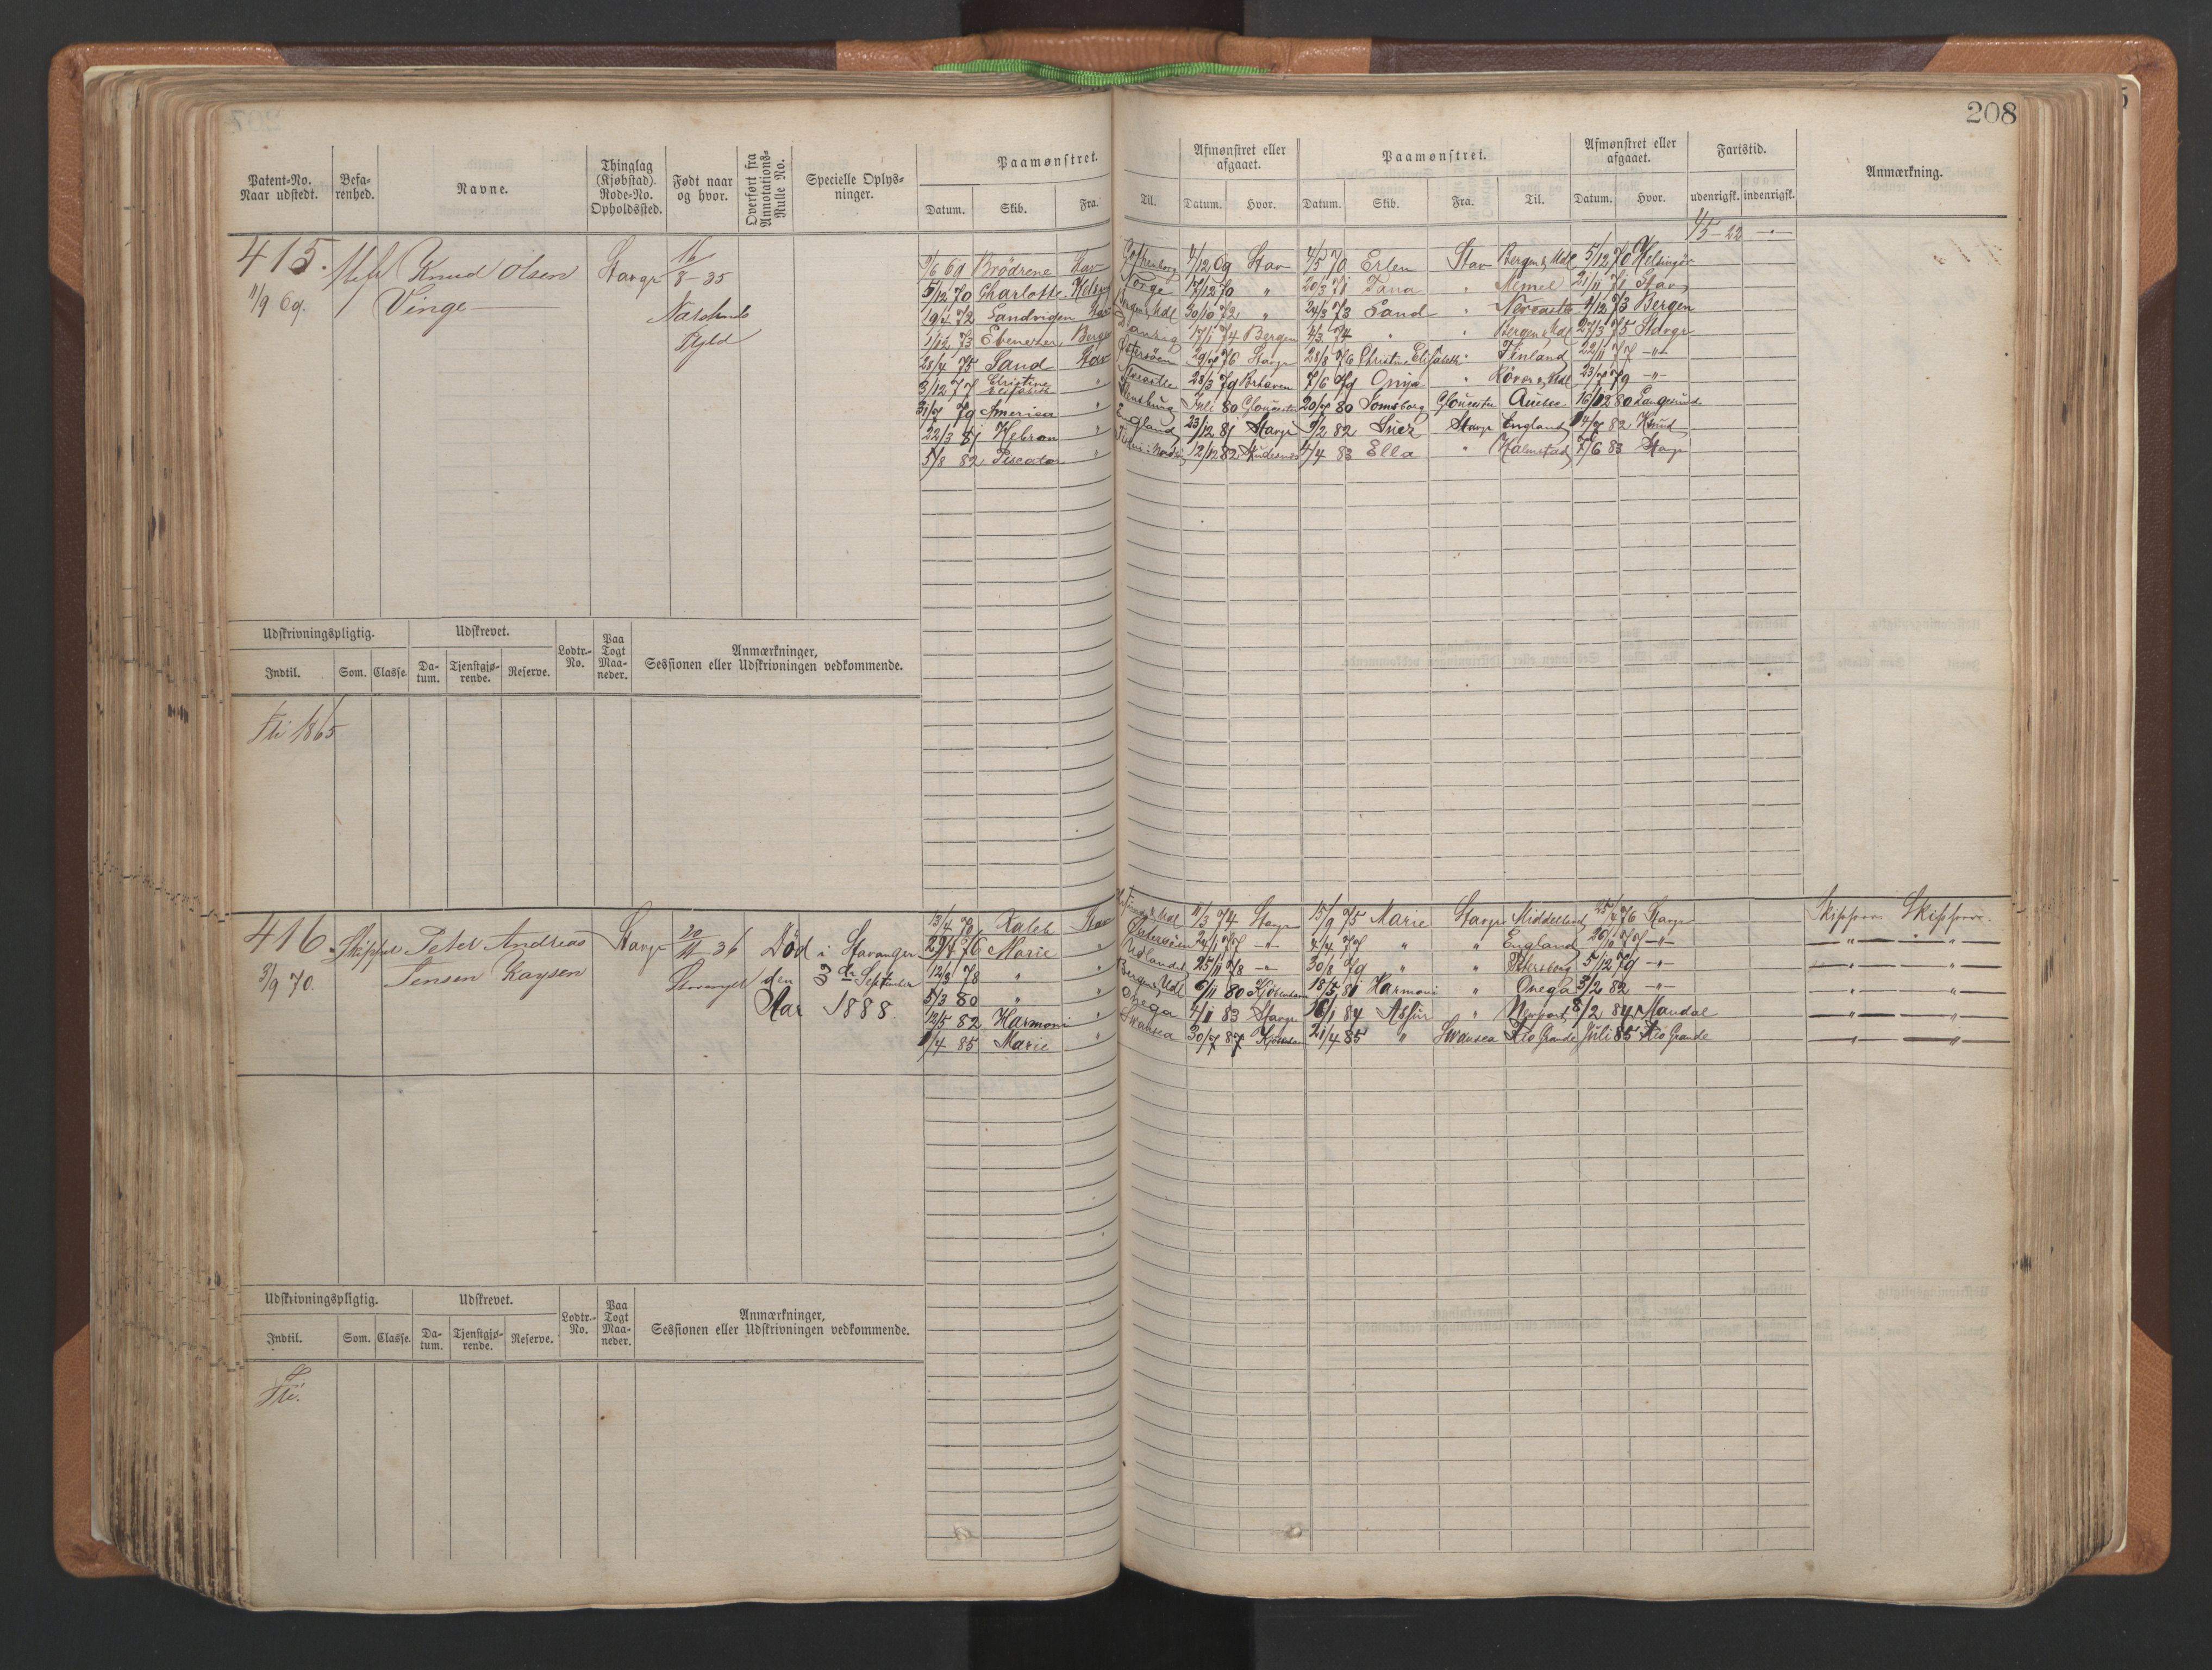 208
Patent-No. Naar udstedt. Befa-renhed. Navne. Thinglag (Kjøbstad). Rode-No. Opholdssted. Født naar og hvor. Overført fra Annotations-Rulle No. Specielle Oplys-ninger. Paamønstret. Afmønstret eller afgaaet. Paamønstret. Afmønstret eller afgaaet. Fartstid. Anmærkning.
Datum. Skib. Fra. Til. Datum. Hvor. Datum. Skib. Fra. Til. Datum. Hvor. udenrigsk. indenrigsk.
45-22
415. Knud Olsen Stavgr 16/8-35
11/9 69. Vinge
9/6 69 Brödrene Stav 4/12 69 Stav 4/5 70 Erlen Stav Bergen & Udl 5/12 70 Helsingør
5/12 70 Charlotte Norge 17/12 70 " 20/3 71 Tana " Memel 21/11 71 Stav
72 Sandvigen Stav 30/10 72 " 24/3 73 Sand " 4/12 73 Bergen
1/12 73 Ebenezer Bergen Danzig 17/1 74 Bergen 4/3 74 " " Bergen & Udl 27/3 75 Stavgr
28/4 75 Sand Stav 29/7 76 Stavgr 28/8 76 Christine Elisabeth " Finland 22/11 77 -"-
3/12 77 Christine Elisabeth " 28/3 79 7/6 79 " 23/7 79 -"-
31/7 79 America " Juli 80 Gloucester 20/7 80 Gloucester Quebec 16/12 80 Langesund
22/3 81 Hebron " England 23/12 81 Stavgr 9/2 82 Suez Stavgr England 14/7 82
5/8 82 Piscator " 12/12 82 4/4 83 Ella " Halmstad 7/6 83 Stavgr
Udskrivningspligtig. Udskrevet. Lodtr.-No. Paa Togt Maa-neder. Anmærkninger, Sessionen eller Udskrivningen vedkommende.
Indtil. Som. Classe. Da-tum. Tjenstgjø-rende. Reserve.
1865
416 Skipper Peter Andreas Stavgr 20/11-36 Död i Stavanger
3/9 70. Jensen Kaysen Stavanger den 3de September
Aar 1888.
13/4 70 Kaleb Stav 11/3 74 Stavgr 15/9 75 Marie Stavgr Middelhavet 25/4 76 Stavgr Skipper Skipper
Marie " 24/1 77 -"- 4/4 77 " " England 26/11 77 -"- -"- -"-
12/3 78 " " Udlandet 25/11 78 -"- 30/8 79 " " Petersborg 5/12 79 -"- -"- -"-
5/3 80 " " Bergen & Udl 6/11 80 Kjøbenhavn 18/5 81 Harmoni " Onega 3/2 82 -"- -"- -"-
12/5 82 Harmoni " Onega 4/11 83 Stavgr 16/1 84 Assur " Newport 8/2 84 Mandal -"- -"-
1/4 85 Marie " Swansea 30/7 87 Kjøbenhavn 21/4 85 " Swansea Rio Grande Juli 85 Rio Grande -"- -"-
Udskrivningspligtig. Udskrevet. Lodtr.-No. Paa Togt Maa-neder. Anmærkninger, Sessionen eller Udskrivningen vedkommende.
Indtil. Som. Classe. Da-tum. Tjenstgjø-rende. Reserve.